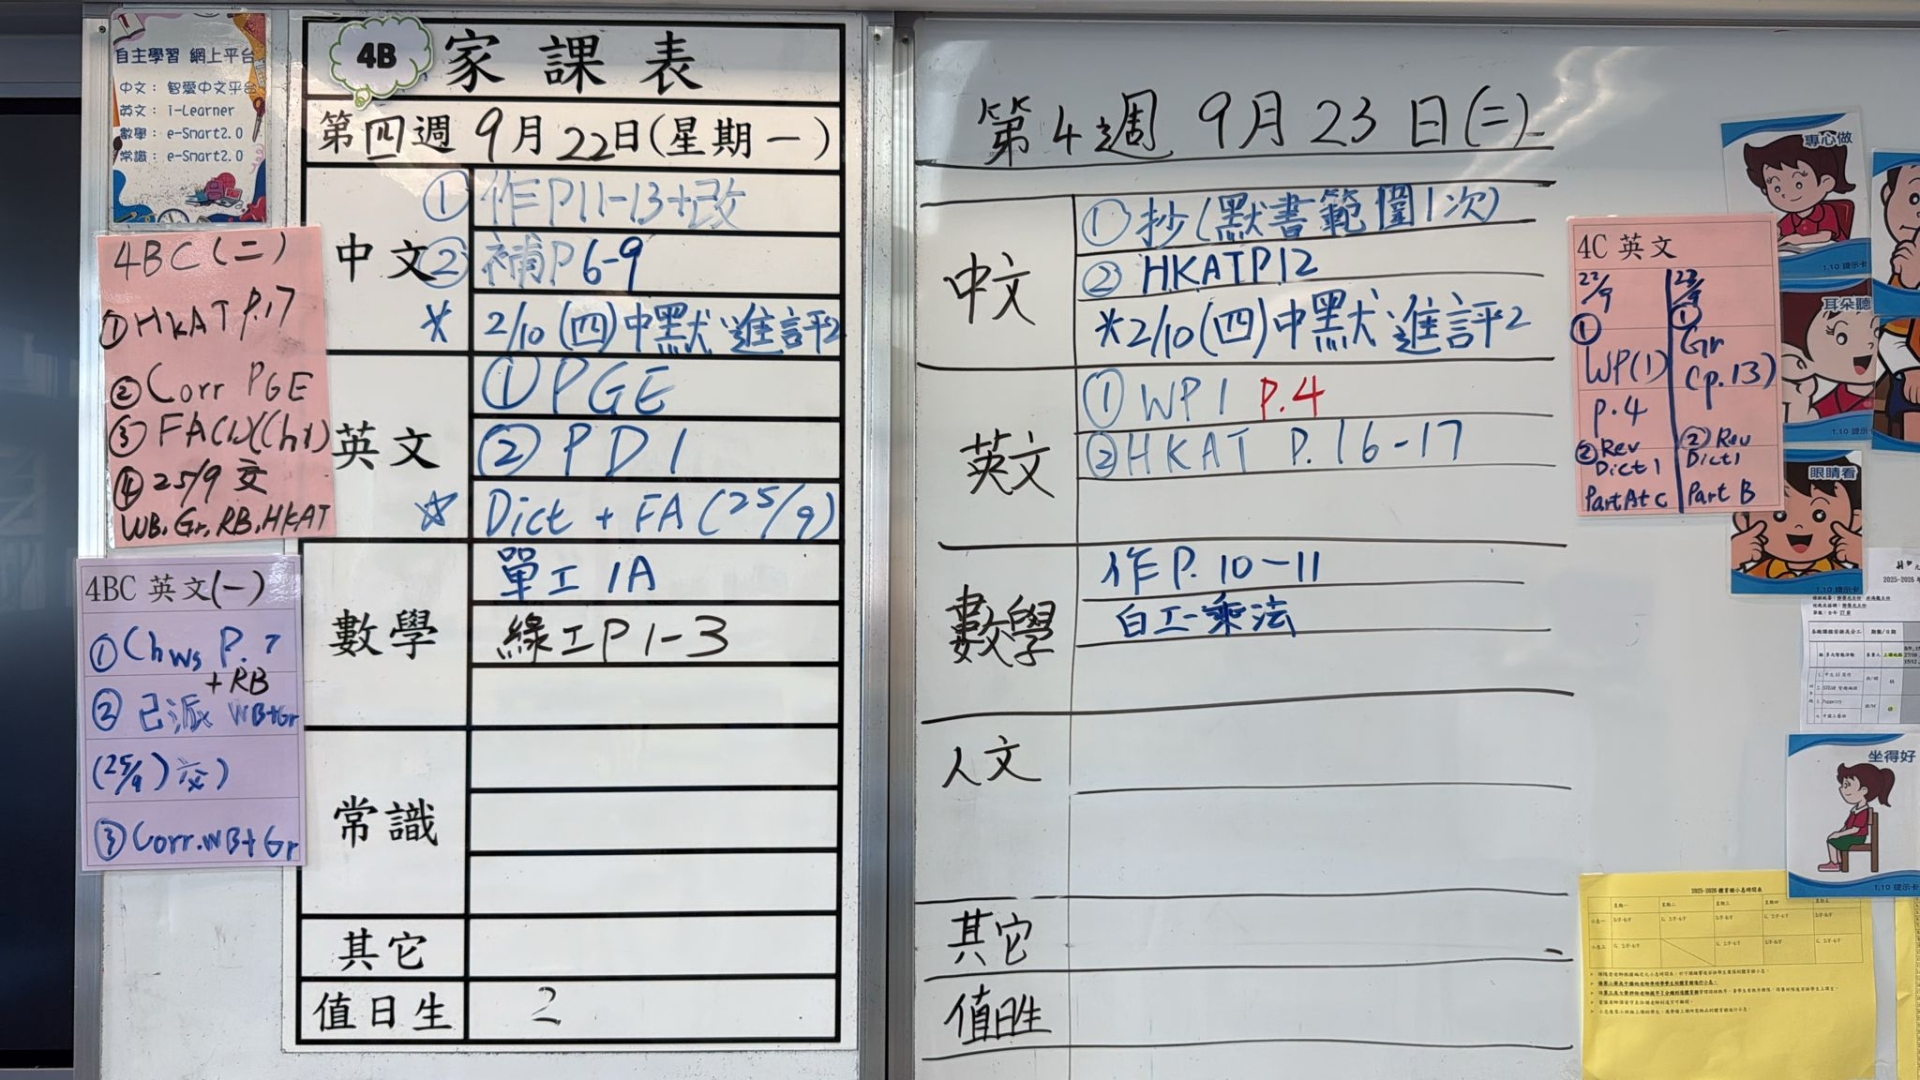 自主學習 網上平台
中文： 智愛中文平台
英文： i-Learner
數學： e-Smart2.0
常識： e-Smart2.0
4BC(二)
①HKAT P.17
②Corr PGE
③FA(1)(Ch1)
④25/9 交
WB, Gr, RB, HKAT
4BC 英文(一)
①Ch WS P.7
+RB
②已派 WB+Gr
(25/9) 交)
③Corr.WB+Gr
4B 家課表
第四週 9月22日(星期一)
中文
①作P11-13+改
②補P6-9
*2/10(四)中默進評2
英文
①PGE
②PD1
☆Dict + FA (25/9)
數學
單工1A
綠工P1-3
常識
其它
值日生 2
第4週 9月23日(二)
中文
①抄(默書範圍1次)
②HKATP12
*2/10(四)中默進評2
英文
①WP1 P.4
②HKAT P.16-17
數學
作P.10-11
白工-乘法
人文
其它
值日生
4C 英文
22/9
①
WP(1)
P.4
②Rev
Dict1
23/9
①
Gr
(p.13)
②Rev
Dict1
Part B
專心做
1.10 提示卡
耳朵聽
眼睛看
坐得好
1.10 提示卡